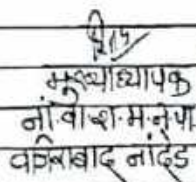 मुख्याध्यापक
नां.वा.श.म.न.पा
वजिराबाद नांदेड